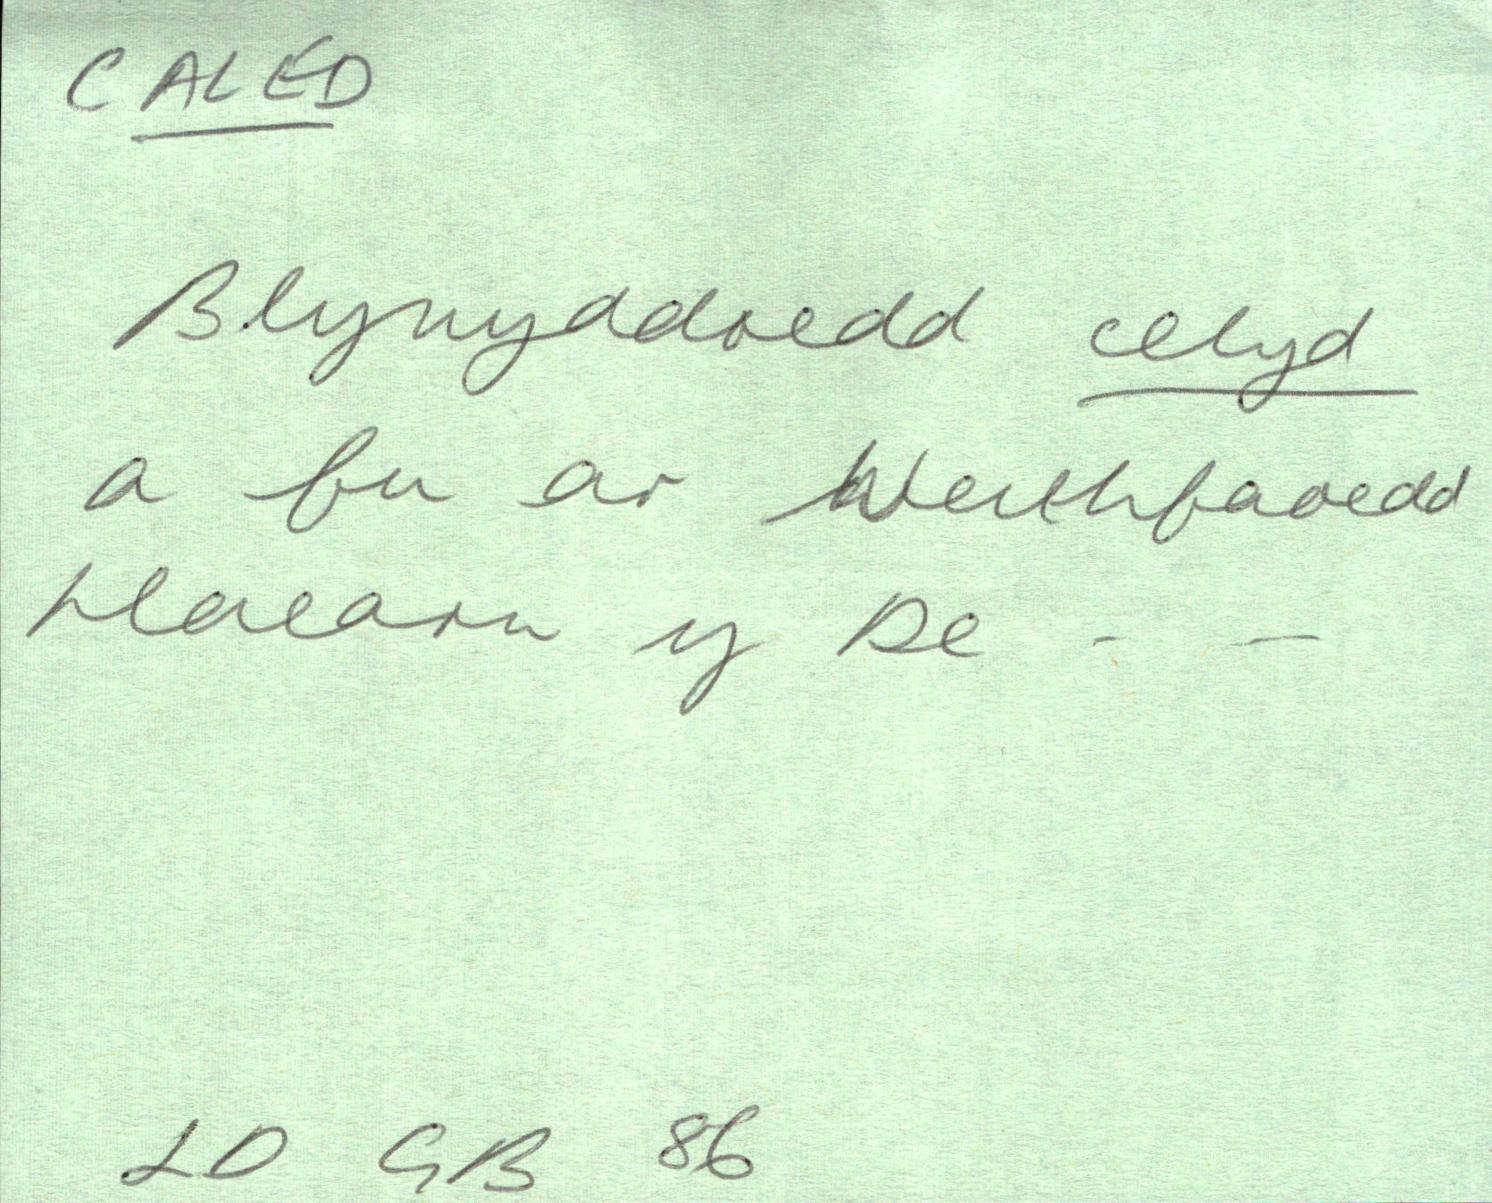 CALED
Blynyddoedd celyd
a fu ar Weithfaoedd
Haearn y De - -
LD GB 86